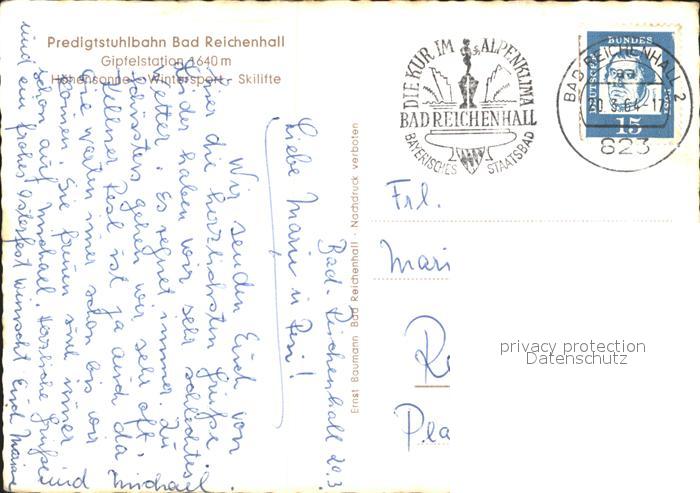 Predigtstuhlbahn Bad Reichenhall
Gipfelstation 1640 m
Höhensonne - Wintersport - Skilifte
DIE KUR IM ALPENKLIMA
BAD REICHENHALL
BAYERISCHES STAATSBAD
BAD REICHENHALL 2
20.3.64-17
823
DEUTSCHE BUNDESPOST
15
Ernst Baumann Bad Reichenhall · Nachdruck verboten
Bad-Reichenhall 20.3
Liebe Marie u Peri!
Wir senden Euch von
hier die herzlichsten Grüße
leider haben wir sehr schlechtes
Wetter. Es regnet immer zu
schönsten gehen wir sehr oft.
Rest ist ja auch da.
Sie warten immer schon bis wir
kommen. Sie freuen sich immer
schon auf Michael. Herzliche Grüße
und ein frohes Osterfest wünscht Euch Marie
und Michael.
Frl.
Mari
R
Pla
privacy protection
Datenschutz